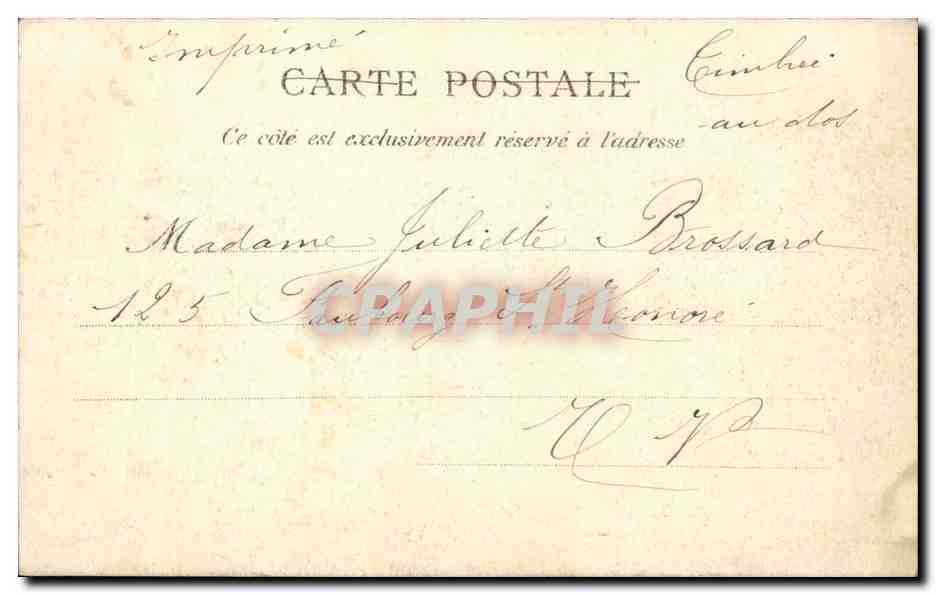 Imprimé
CARTE POSTALE
Timbrée
au dos
Ce côté est exclusivement réservé à l'adresse
Madame Juliette Brossard
125 Faubourg St Honoré
CRAPHIL